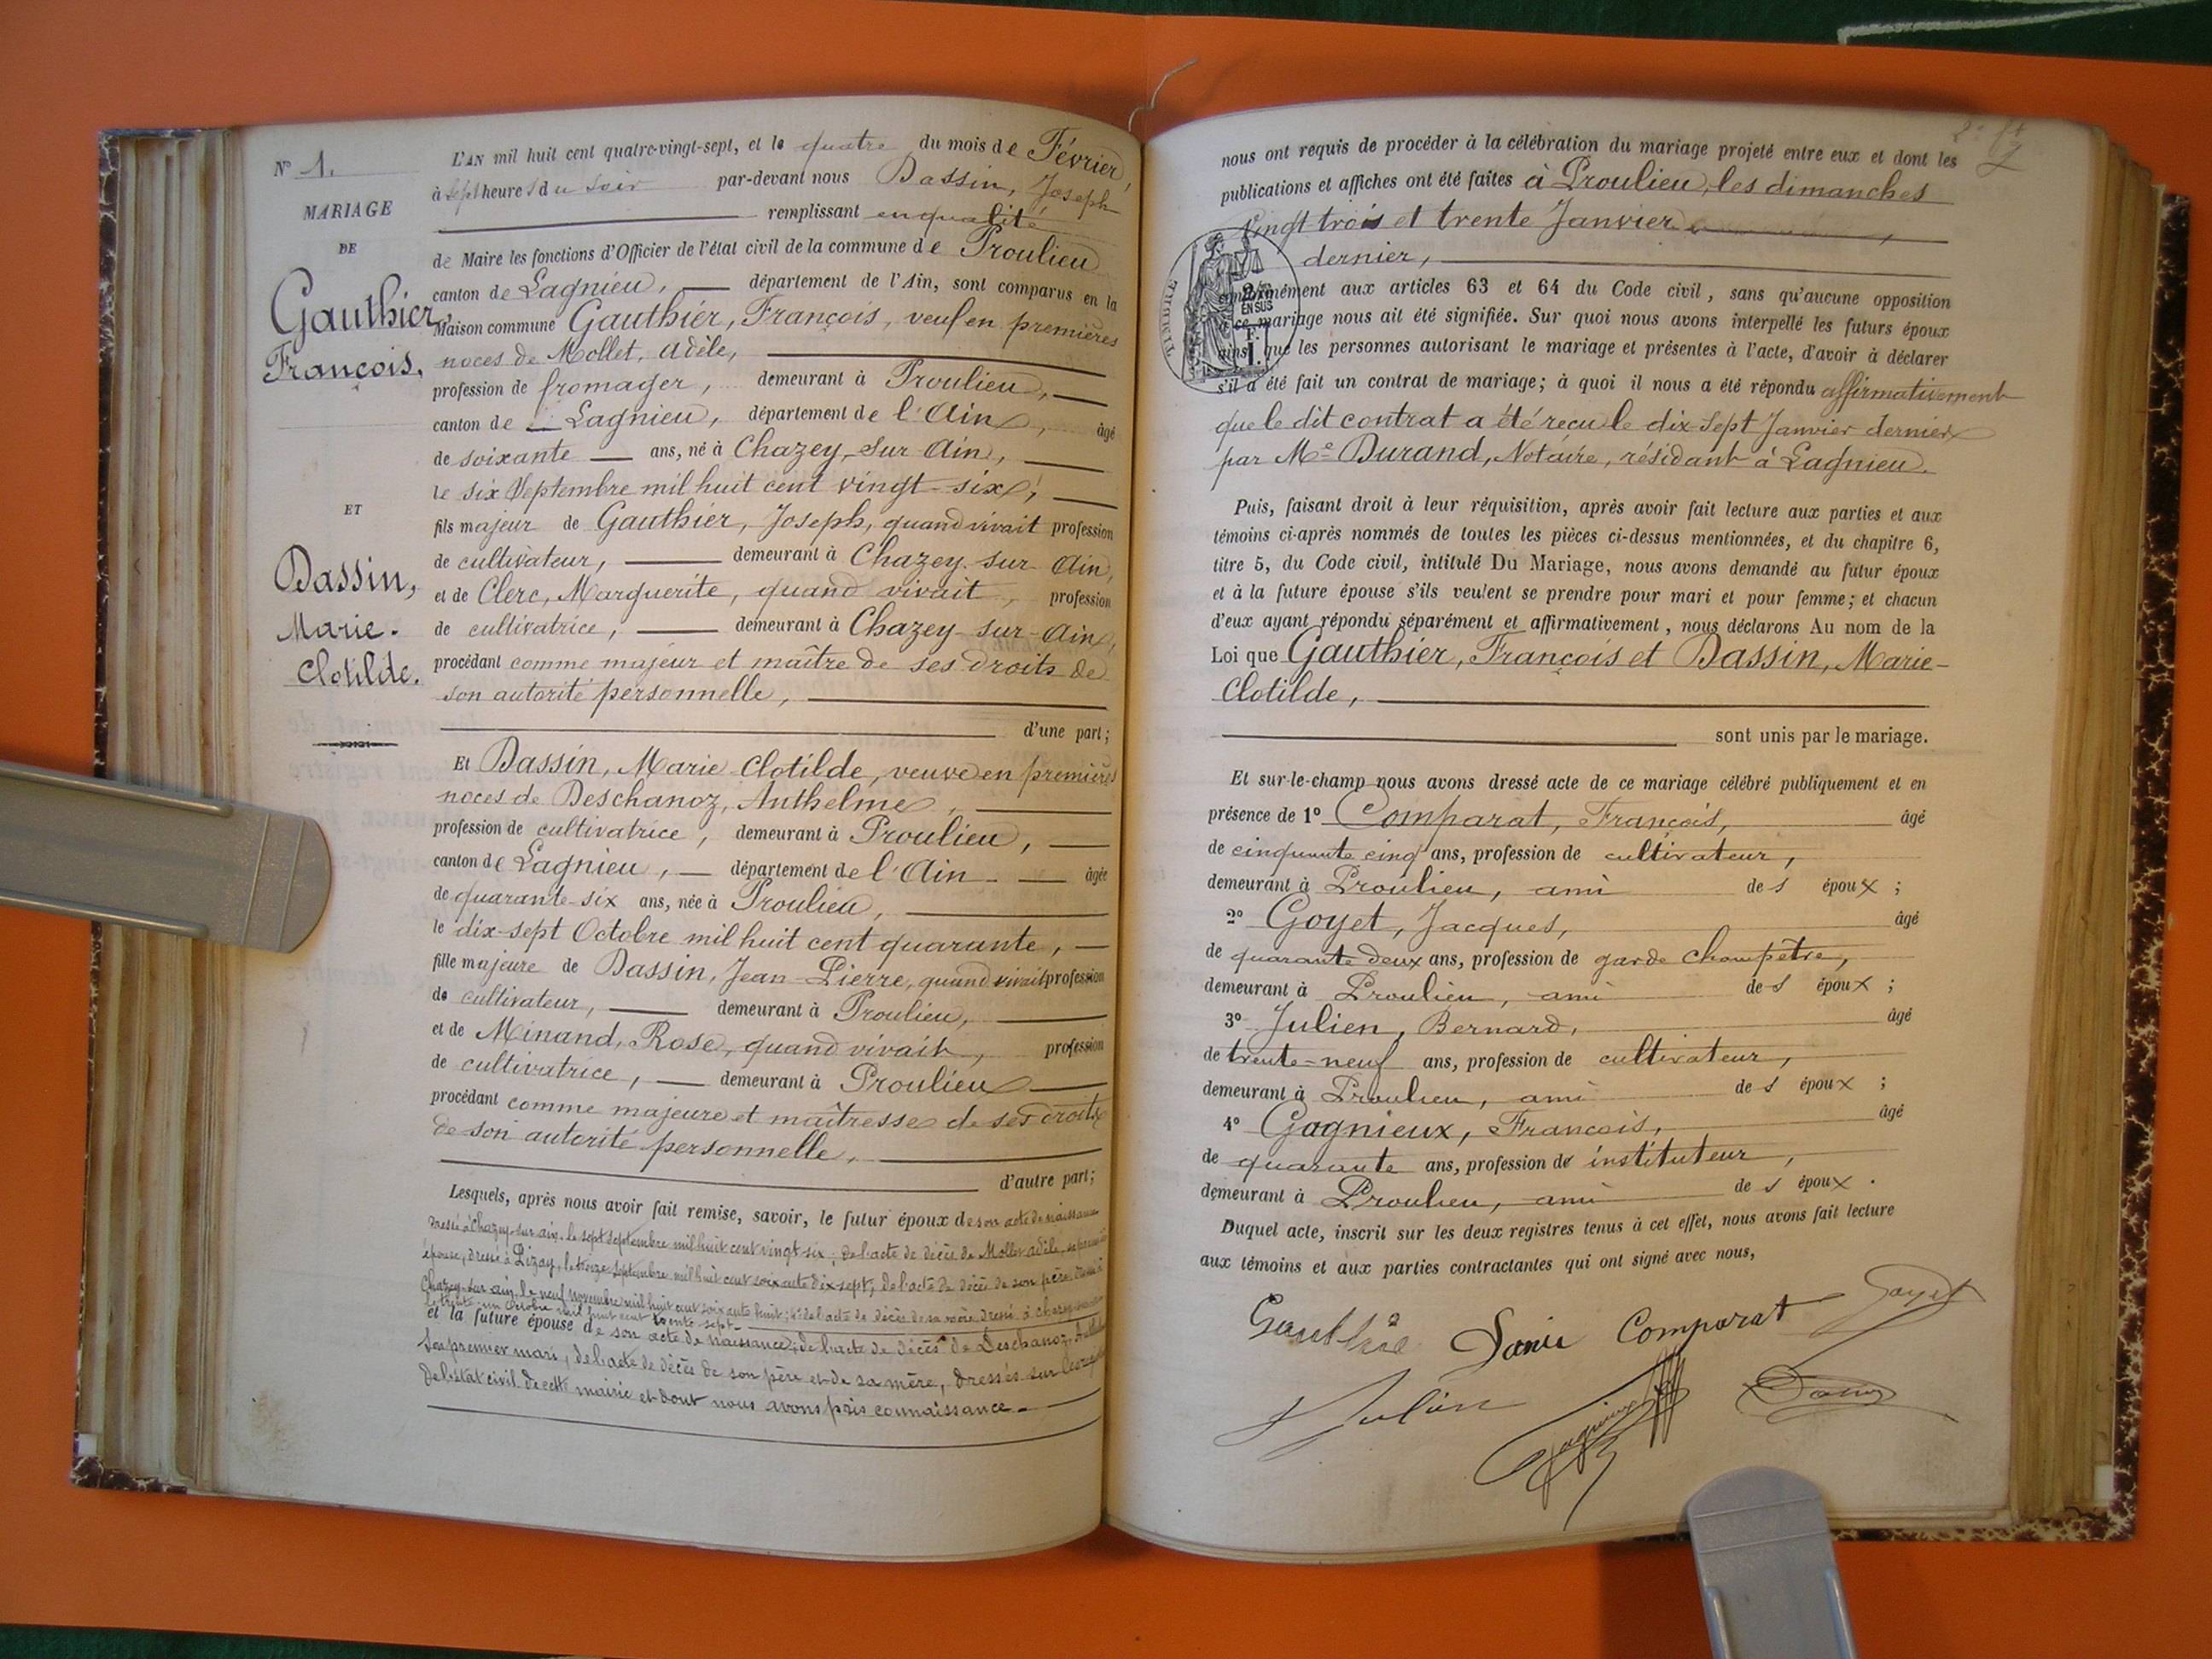 N° 1.
MARIAGE
DE
Gauthier,
François.
ET
Dassin,
Marie-
Clotilde.
L'AN mil huit cent quatre-vingt-sept, et le quatre du mois de Février,
à sept heures du soir par-devant nous Dassin, Joseph
remplissant en qualité
de Maire les fonctions d'Officier de l'état civil de la commune de Proulieu
canton de Lagnieu, département de l'Ain, sont comparus en la
Maison commune Gauthier, François, veuf en premières
noces de Mollet, Adèle,
profession de fromager, demeurant à Proulieu,
canton de Lagnieu, département de l'Ain, âgé
de soixante ans, né à Chazey-sur-Ain,
le six Septembre mil huit cent vingt-six,
fils majeur de Gauthier, Joseph, quand vivait profession
de cultivateur, demeurant à Chazey-sur-Ain,
et de Clerc, Marguerite, quand vivait, profession
de cultivatrice, demeurant à Chazey-sur-Ain,
procédant comme majeur et maître de ses droits de
son autorité personnelle,
d'une part;
Et Dassin, Marie-Clotilde, veuve en premières
noces de Deschanoz, Anthelme,
profession de cultivatrice, demeurant à Proulieu,
canton de Lagnieu, département de l'Ain âgée
de quarante-six ans, née à Proulieu,
le dix-sept Octobre mil huit cent quarante,
fille majeure de Dassin, Jean-Pierre, quand vivait profession
de cultivateur, demeurant à Proulieu,
et de Minand, Rose, quand vivait, profession
de cultivatrice, demeurant à Proulieu
procédant comme majeure et maîtresse de ses droits
de son autorité personnelle,
d'autre part;
Lesquels, après nous avoir fait remise, savoir, le futur époux de son acte de naissance
dressé à Chazey-sur-ain, le sept septembre mil huit cent vingt-six; de l'acte de décès de Mollet adèle, sa première
épouse, dressé à Lizay, le treize Septembre mil huit cent soixante dix sept; de l'acte de décès de son père, dressé à
Chazey-sur-ain, le neuf novembre mil huit cent soixante huit; & de l'acte de décès de sa mère dressé à Chazey-sur-ain
le trente-un Octobre mil huit cent trente sept.
et la future épouse de son acte de naissance; de l'acte de décès de Deschanoz,
son premier mari, de l'acte de décès de son père et de sa mère, dressés sur
de l'état civil de cette mairie et dont nous avons pris connaissance.
nous ont requis de procéder à la célébration du mariage projeté entre eux et dont les
publications et affiches ont été faites à Proulieu, les dimanches
vingt trois et trente Janvier
dernier,
conformément aux articles 63 et 64 du Code civil, sans qu'aucune opposition
à ce mariage nous ait été signifiée. Sur quoi nous avons interpellé les futurs époux
ainsi que les personnes autorisant le mariage et présentes à l'acte, d'avoir à déclarer
s'il a été fait un contrat de mariage; à quoi il nous a été répondu affirmativement
que le dit contrat a été reçu le dix-sept Janvier dernier
par Me Durand, Notaire, résidant à Lagnieu.
TIMBRE
EN SUS
Puis, faisant droit à leur réquisition, après avoir fait lecture aux parties et aux
témoins ci-après nommés de toutes les pièces ci-dessus mentionnées, et du chapitre 6,
titre 5, du Code civil, intitulé Du Mariage, nous avons demandé au futur époux
et à la future épouse s'ils veulent se prendre pour mari et pour femme; et chacun
d'eux ayant répondu séparément et affirmativement, nous déclarons Au nom de la
Loi que Gauthier, François et Dassin, Marie-
Clotilde,
sont unis par le mariage.
Et sur-le-champ nous avons dressé acte de ce mariage célébré publiquement et en
présence de 1° Comparat, François, âgé
de cinquante cinq ans, profession de cultivateur,
demeurant à Proulieu, ami des époux;
2° Goyet, Jacques, âgé
de quarante deux ans, profession de garde champêtre,
demeurant à Proulieu, ami des époux;
3° Julien, Bernard, âgé
de trente-neuf ans, profession de cultivateur,
demeurant à Proulieu, ami des époux;
4° Gagnieux, François, âgé
de quarante ans, profession de instituteur,
demeurant à Proulieu, ami des époux.
Duquel acte, inscrit sur les deux registres tenus à cet effet, nous avons fait lecture
aux témoins et aux parties contractantes qui ont signé avec nous,
Goyet
Comparat
Julien
Gagnieux